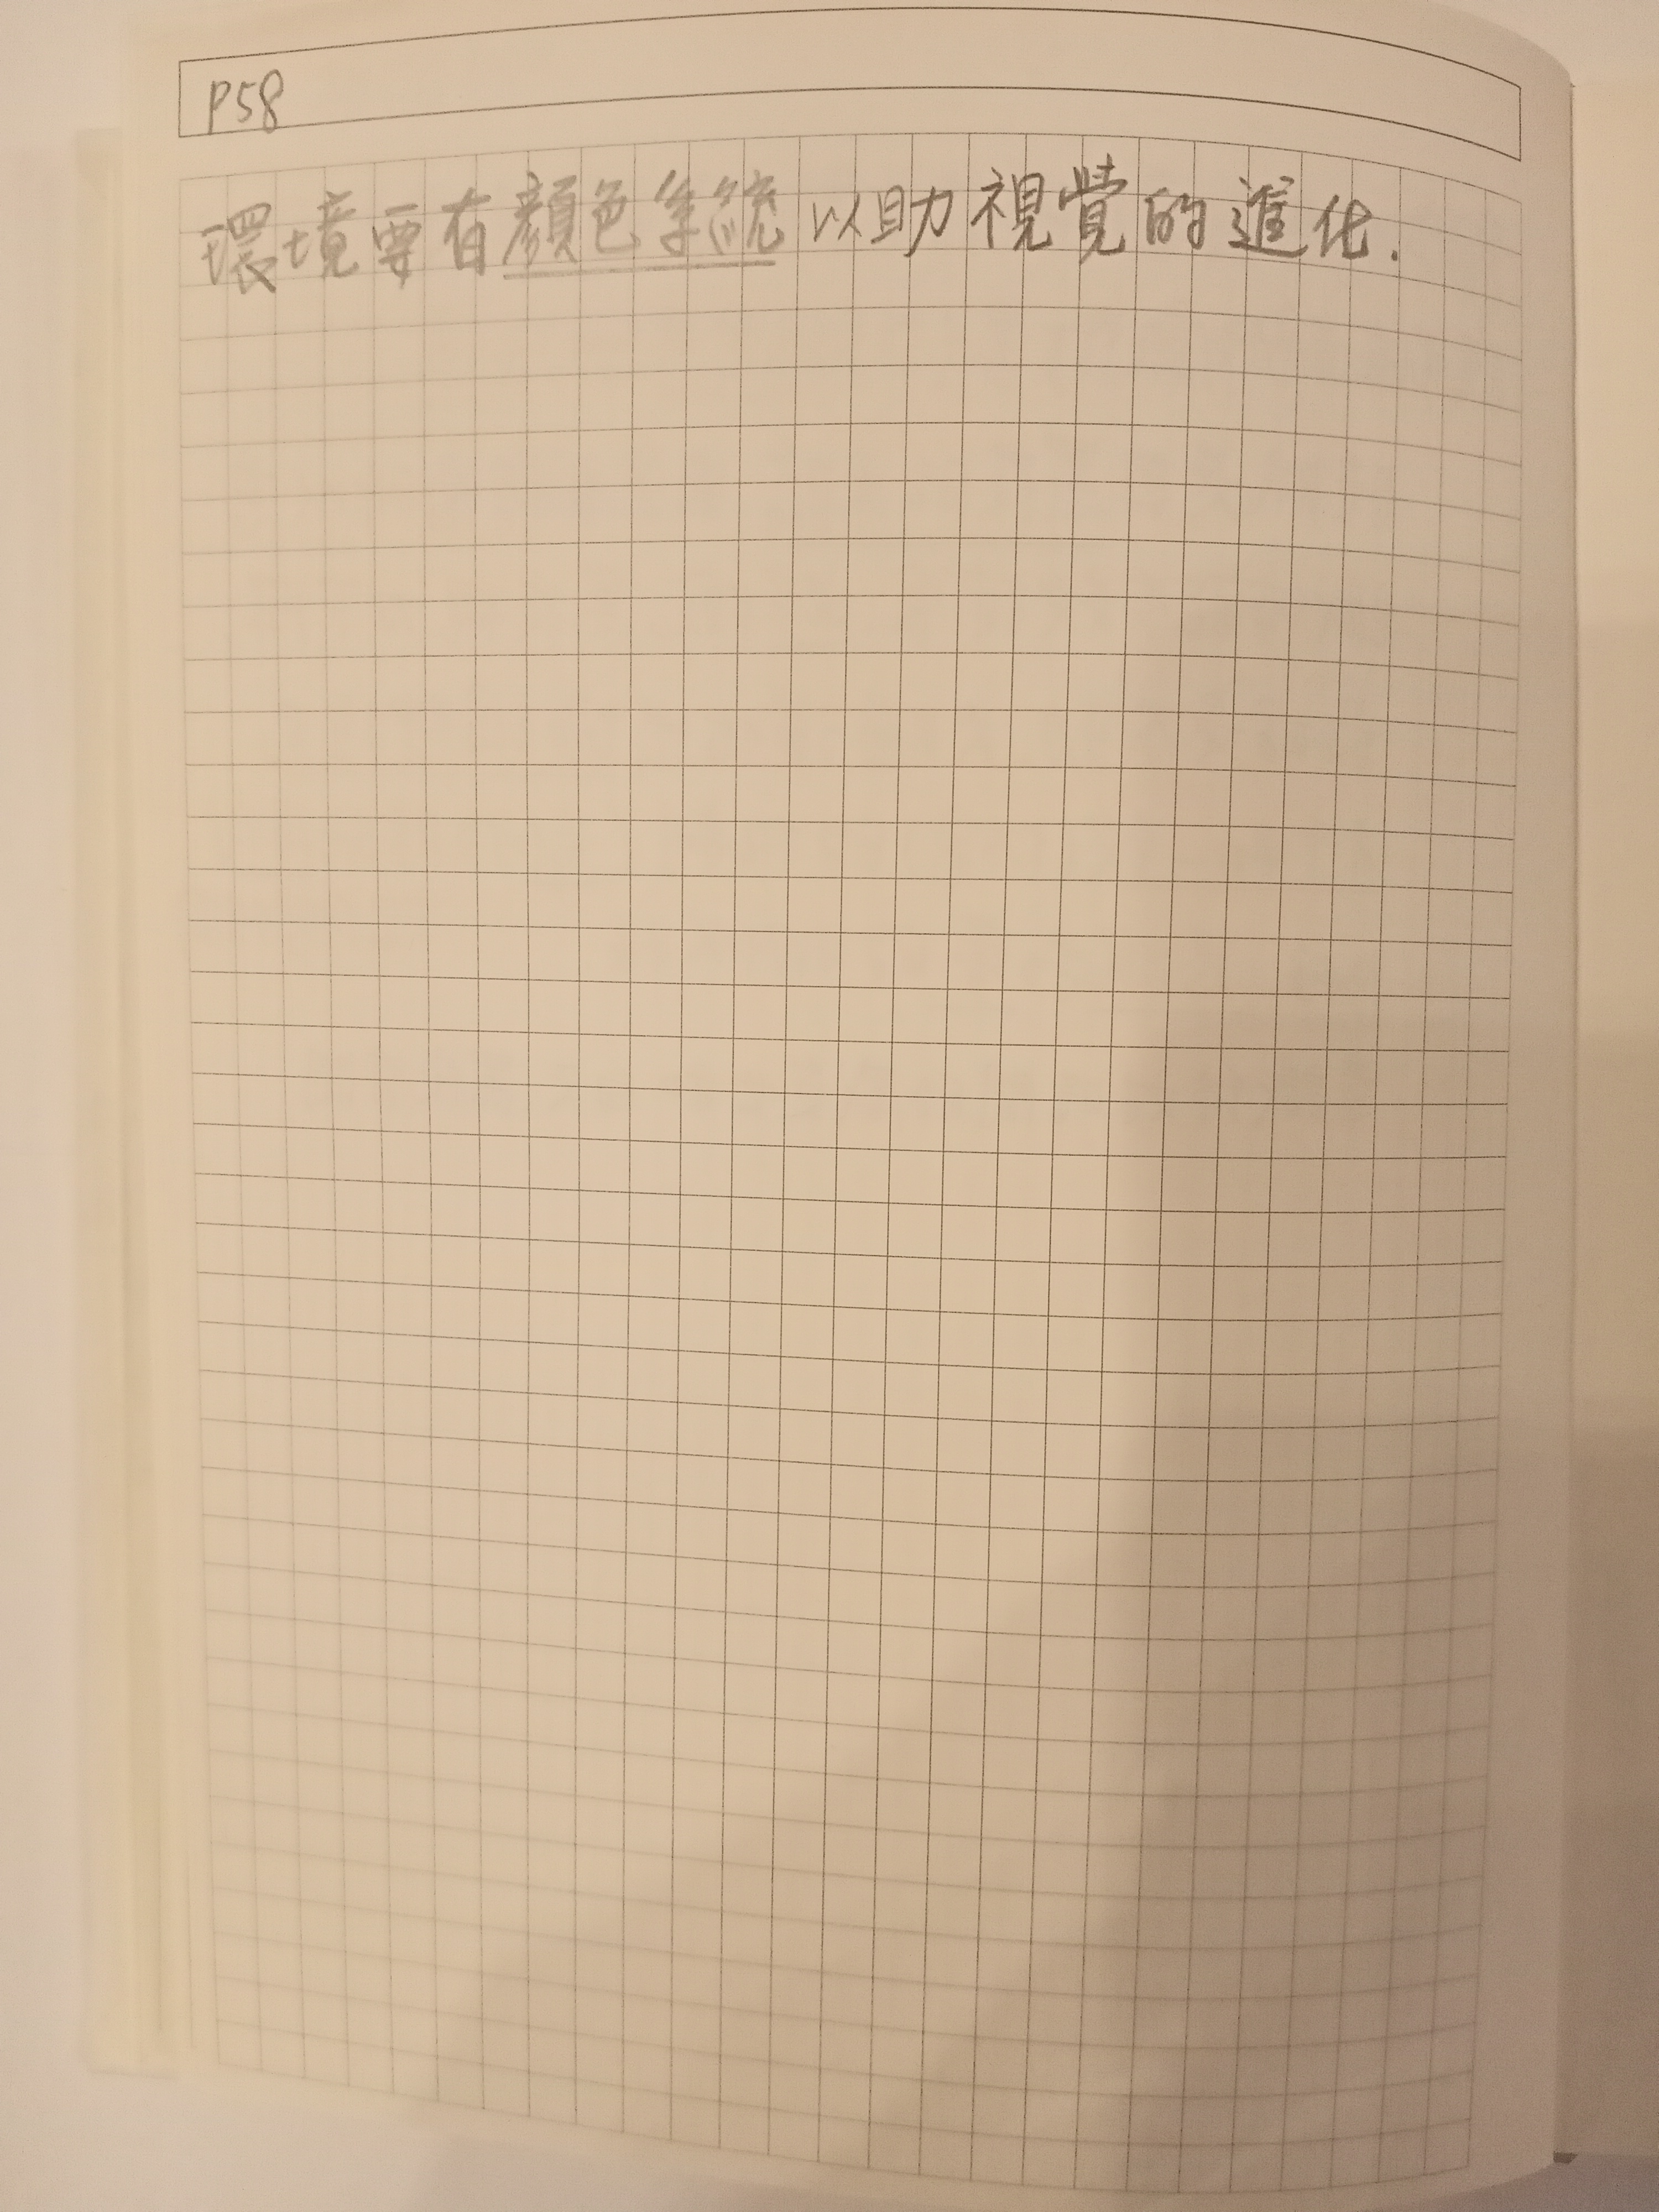 P58
環境要有顏色系統以助視覺的進化.